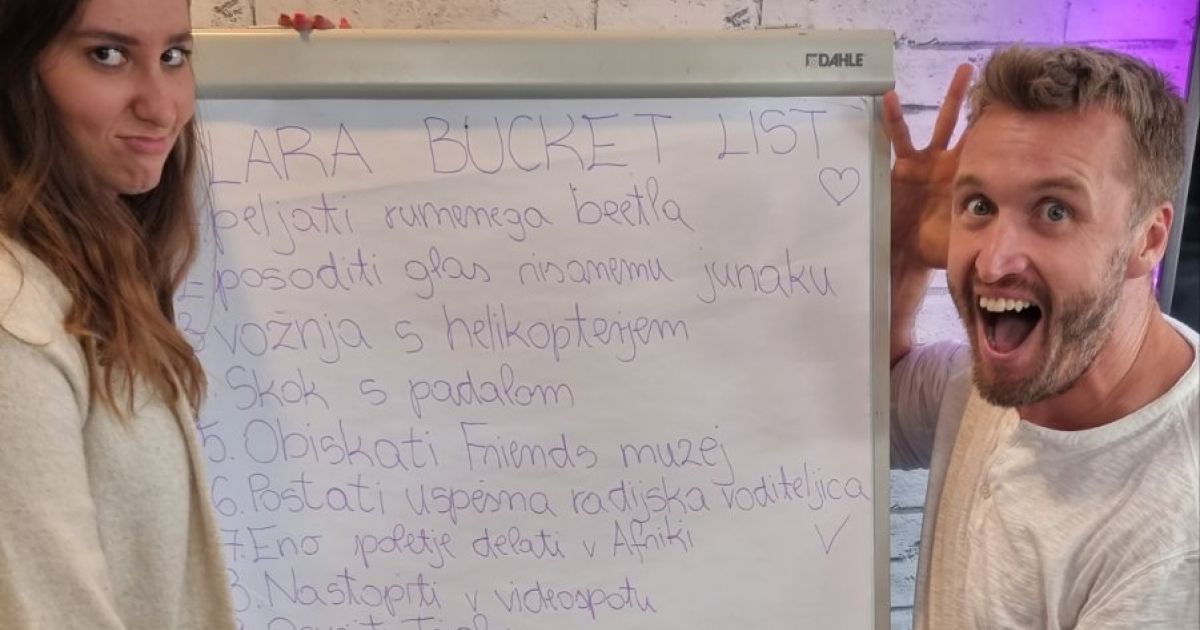 DAHLE
LARA BUCKET LIST
peljati rumenega beetla
2. posoditi glas risanemu junaku
3. vožnja s helikopterjem
Skok s padalom
5. Obiskati Friends muzej
6. Postati uspešna radijska voditeljica
7. Eno poletje delati v Afriki
8. Nastopiti v videospotu